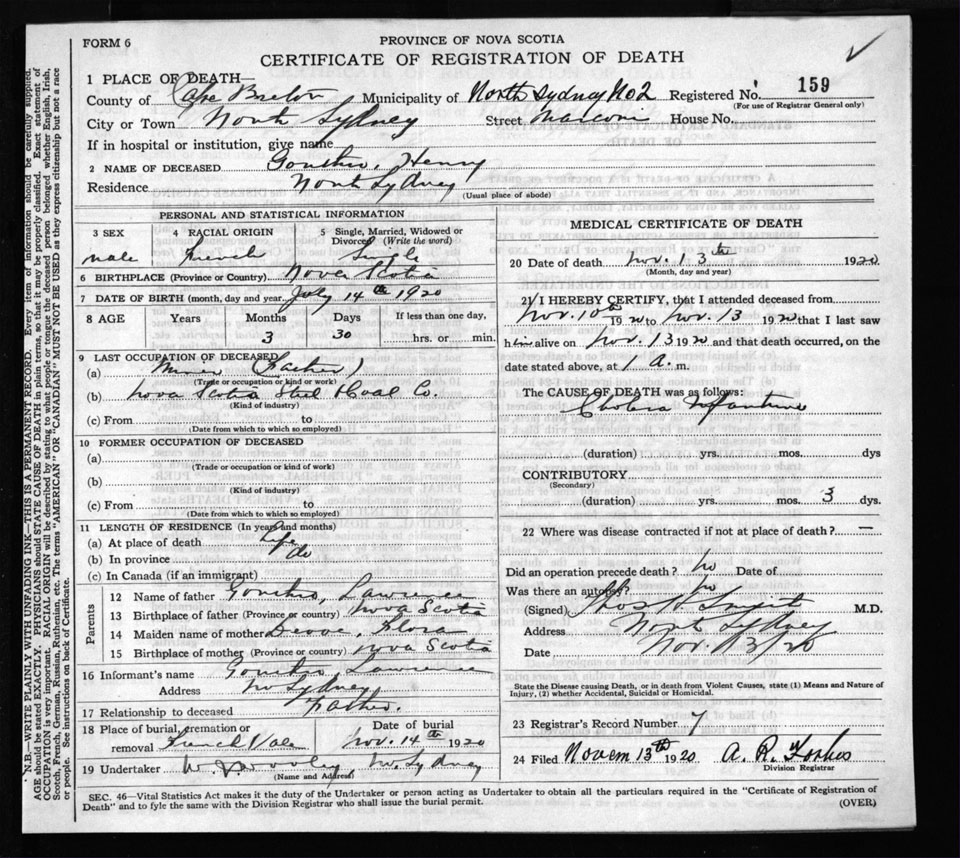 FORM 6
PROVINCE OF NOVA SCOTIA
CERTIFICATE OF REGISTRATION OF DEATH
1 PLACE OF DEATH—
County of Cape Breton Municipality of North Sydney No 2 Registered No. 159
(For use of Registrar General only)
City or Town North Sydney Street Marconi House No.
If in hospital or institution, give name
2 NAME OF DECEASED Gouthro, Henry
Residence North Sydney
(Usual place of abode)
PERSONAL AND STATISTICAL INFORMATION
3 SEX 4 RACIAL ORIGIN 5 Single, Married, Widowed or Divorced (Write the word)
male French Single
6 BIRTHPLACE (Province or Country) Nova Scotia
7 DATE OF BIRTH (month, day and year) July 14th 1920
8 AGE Years Months Days If less than one day,
3 30 hrs. or min.
9 LAST OCCUPATION OF DECEASED
(a) Miner (Father)
(Trade or occupation or kind of work)
(b) Nova Scotia Steel & Coal Co.
(Kind of industry)
(c) From to
(Date from which to which so employed)
10 FORMER OCCUPATION OF DECEASED
(a)
(Trade or occupation or kind of work)
(b)
(Kind of industry)
(c) From to
(Date from which to which so employed)
11 LENGTH OF RESIDENCE (In years and months)
(a) At place of death Life
(b) In province do
(c) In Canada (if an immigrant)
Parents
12 Name of father Gouthro, Lawrence
13 Birthplace of father (Province or country) Nova Scotia
14 Maiden name of mother Flora
15 Birthplace of mother (Province or country) Nova Scotia
16 Informant's name Gouthro Lawrence
Address No Sydney
17 Relationship to deceased Father.
18 Place of burial, cremation or removal French Vale Date of burial Nov. 14th 1920
19 Undertaker No. Sydney
(Name and Address)
MEDICAL CERTIFICATE OF DEATH
20 Date of death Nov. 13th 1920
(Month, day and year)
21 I HEREBY CERTIFY, that I attended deceased from
Nov. 10th 1920 to Nov. 13 1920 that I last saw
him alive on Nov. 13 1920 and that death occurred, on the
date stated above, at 1 A. m.
The CAUSE OF DEATH was as follows:
Cholera Infantum
(duration) yrs. mos. dys
CONTRIBUTORY
(Secondary)
(duration) yrs. mos. 3 dys.
22 Where was disease contracted if not at place of death? —
Did an operation precede death? No Date of
Was there an autopsy? No
(Signed) Thos M.D.
Address North Sydney
Date Nov. 13/20
State the Disease causing Death, or in death from Violent Causes, state (1) Means and Nature of
Injury, (2) whether Accidental, Suicidal or Homicidal.
23 Registrar's Record Number 7
24 Filed Novem 13th 1920 A. R. Forbes
Division Registrar
SEC. 46—Vital Statistics Act makes it the duty of the Undertaker or person acting as Undertaker to obtain all the particulars required in the "Certificate of Registration of
Death" and to fyle the same with the Division Registrar who shall issue the burial permit. (OVER)
N.B.—WRITE PLAINLY WITH UNFADING INK—THIS IS A PERMANENT RECORD. Every item of information should be carefully supplied.
AGE should be stated EXACTLY. PHYSICIANS should STATE CAUSE OF DEATH in plain terms, so that it may be properly classified. Exact statement of
OCCUPATION is very important. RACIAL ORIGIN will be described by stating to what people or tongue the deceased person belonged whether English, Irish,
Scotch, French, German, Russian, Ruthenian, etc. The terms "AMERICAN" OR "CANADIAN" MUST NOT BE USED as they express citizenship but not a race
or people. See instructions on back of Certificate.